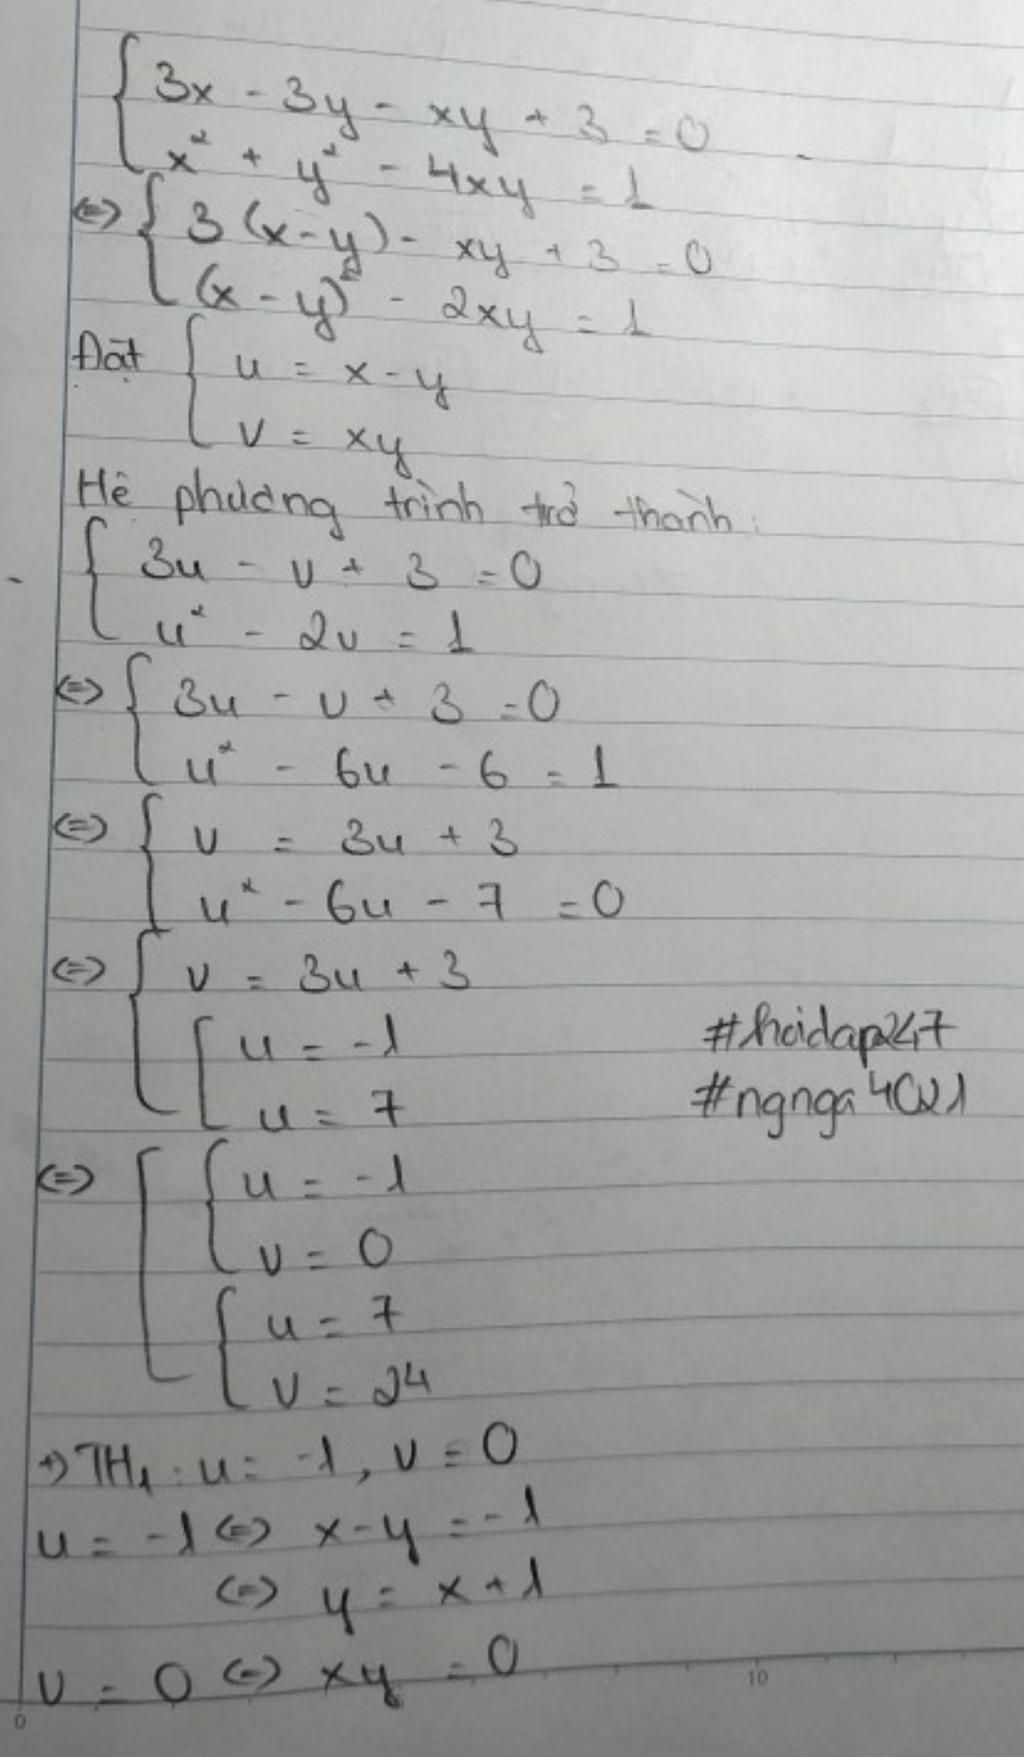 { 3x - 3y - xy + 3 = 0
x² + y² - 4xy = 1
<=> { 3(x-y) - xy + 3 = 0
(x-y)² - 2xy = 1
Đặt { u = x-y
v = xy
Hệ phương trình trở thành:
{ 3u - v + 3 = 0
u² - 2v = 1
<=> { 3u - v + 3 = 0
u² - 6u - 6 = 1
<=> { v = 3u + 3
u² - 6u - 7 = 0
<=> { v = 3u + 3
[ u = -1
#hoidap247
u = 7
#ngnga4021
<=> [ { u = -1
v = 0
{ u = 7
v = 24
+) TH₁: u = -1, v = 0
u = -1 <=> x-y = -1
<=> y = x+1
v = 0 <=> xy = 0
0
10